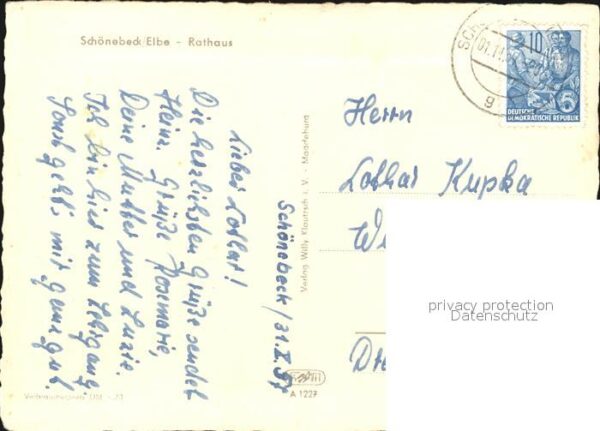 Schönebeck/Elbe - Rathaus
Schönebeck/31.X.57
Lieber Lothar!
Die herzlichsten Grüße sendet
Heinz. Grüße Rosemarie,
Deine Mutter und Luzie.
Ich bin hier zum Lehrgang
Sonst geht's mir ganz gut.
Verlag Willy Klautzsch i. V. - Magdeburg
A 1227
10
DEUTSCHE
DEMOKRATISCHE REPUBLIK
Herrn
Lothar Kupka
privacy protection
Datenschutz